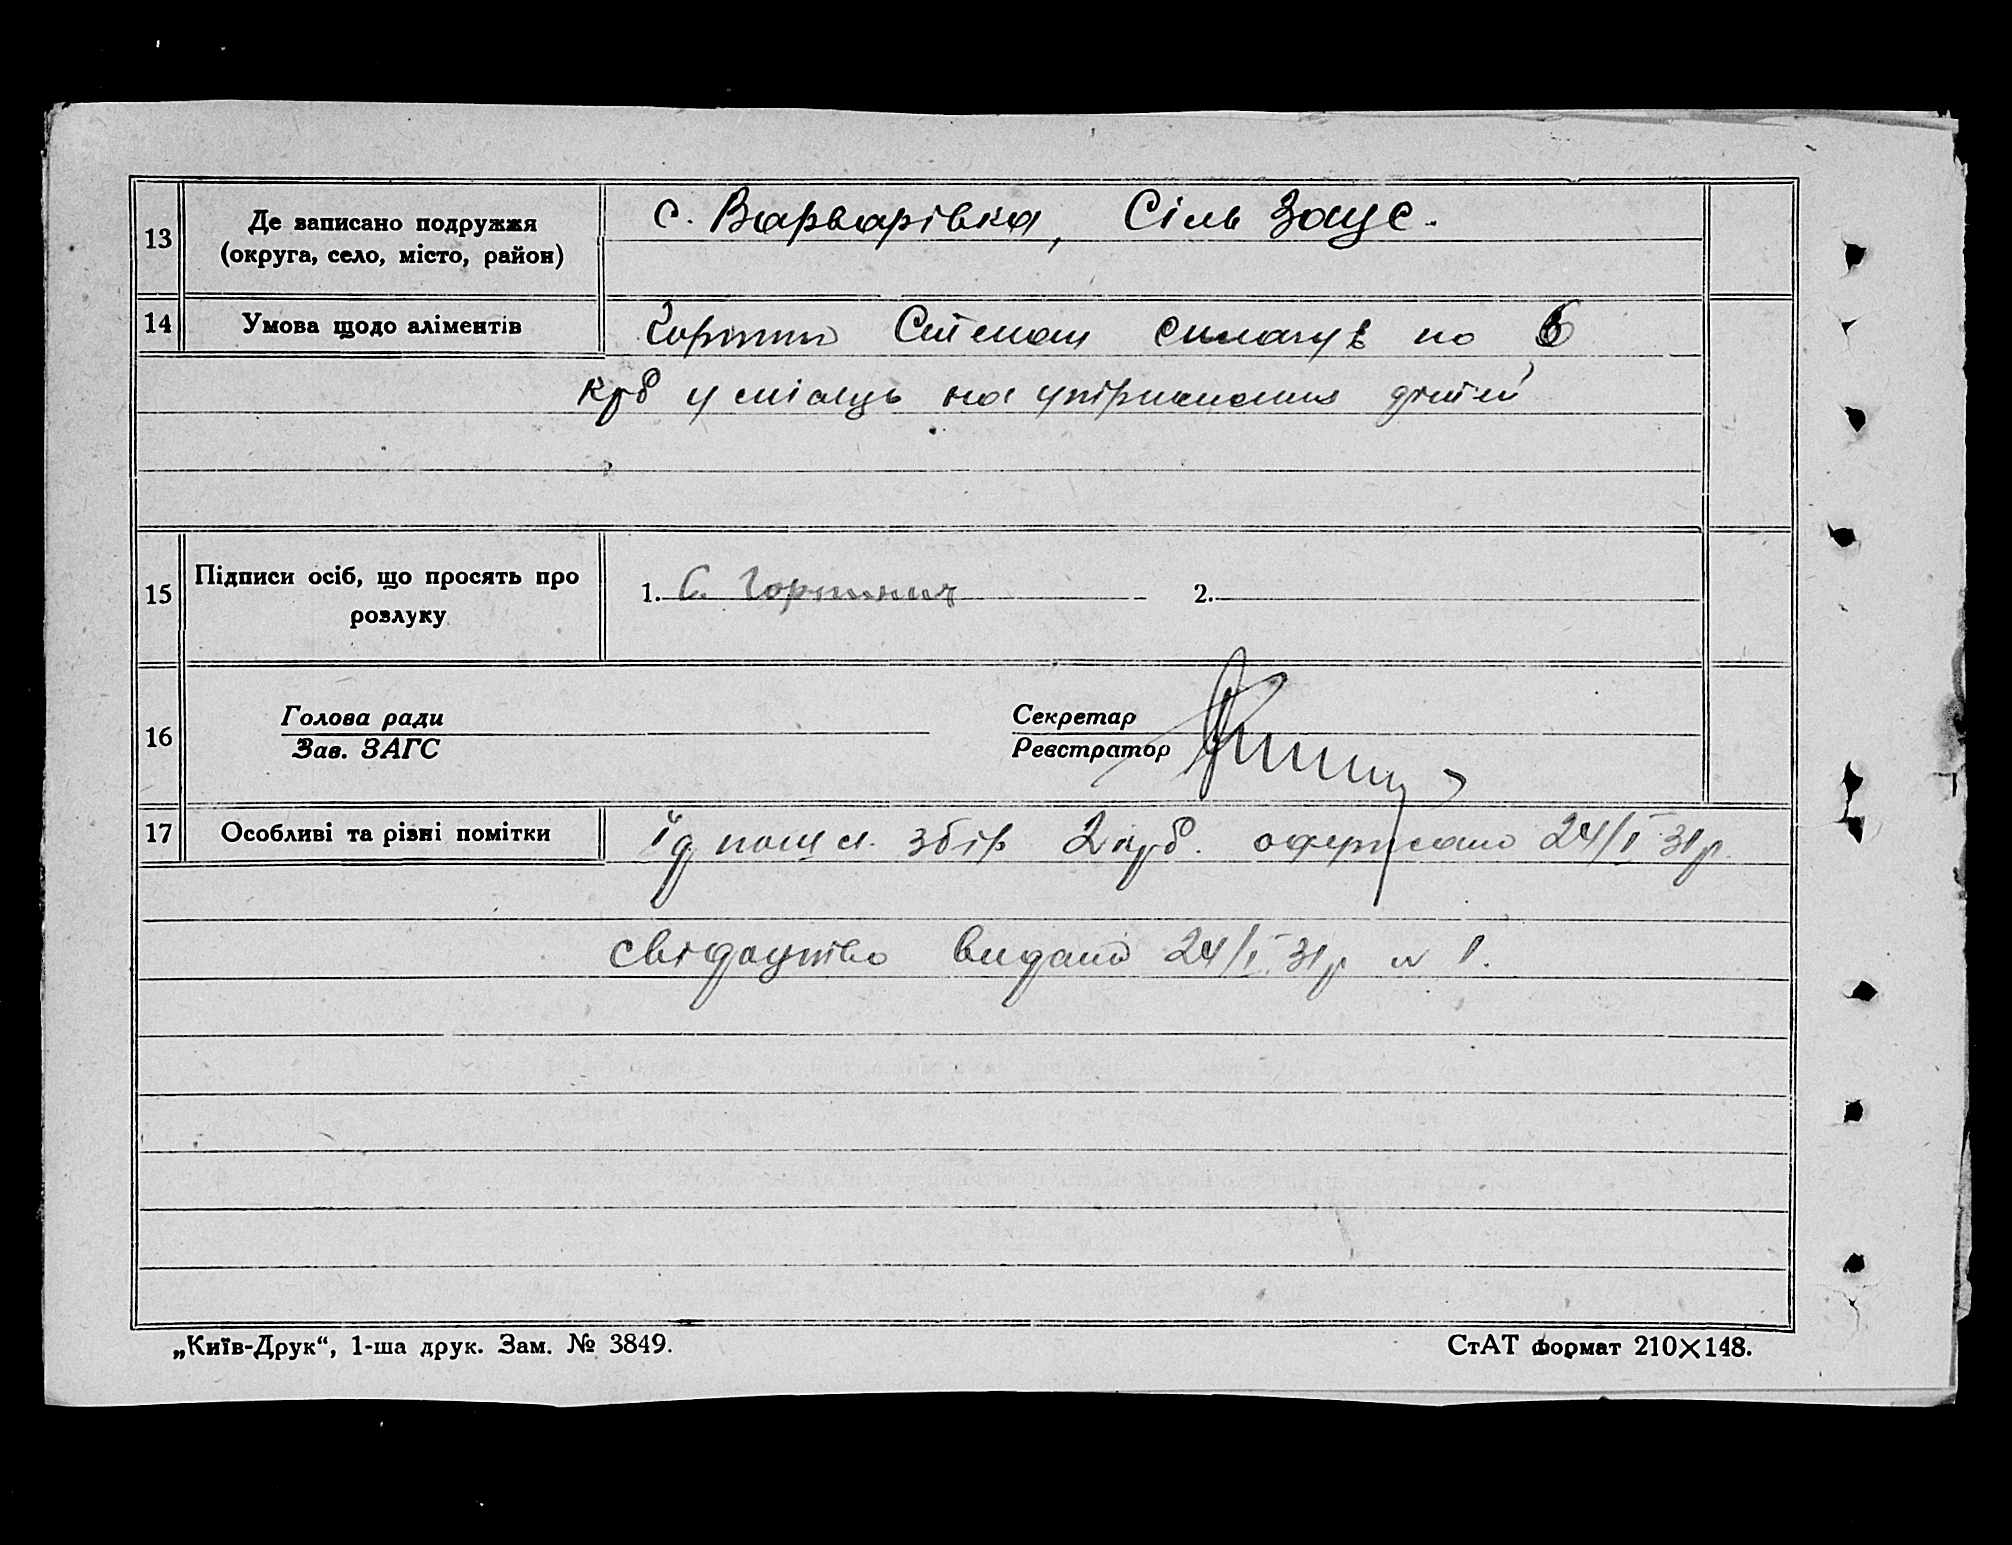 13 Де записано подружжя с. Варварівка, Сіль Загс.
(округа, село, місто, район)
14 Умова щодо аліментів Степан сплачує по 6
крб у місяць на утримання дітей
15 Підписи осіб, що просять про 1. С. 2.
розлуку
16 Голова ради Секретар
Зав. ЗАГС Реєстратор
17 Особливі та різні помітки збір 2 крб. одержано 24/I 31р.
свідоцтво видано 24/I 31р № 1.
„Київ-Друк“, 1-ша друк. Зам. № 3849. СтАТ формат 210×148.